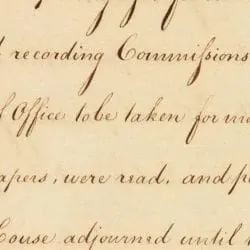 recording Commissions
Office to be taken for
apers, were read, and p
House adjourned until